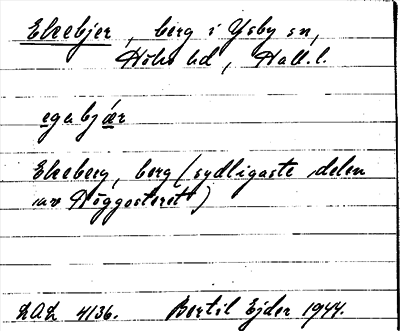 Ekebjer, berg i Ysby sn,
Höks hd, Hall.l.
egabjær
Ekeberg, berg (sydligaste delen
av Höggasteret)
LAL 4136. Bertil Ejder 1944.